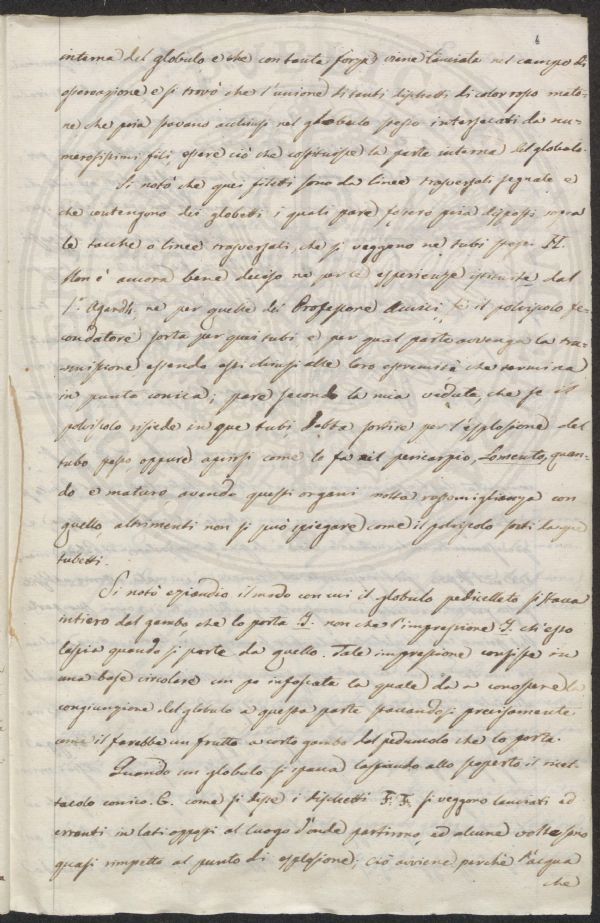 6
interna del globulo e che con tanta forza viene lanciata nel campo di
osservazione e si trovò che l'unione di tanti dischetti di color rosso mato-
ne che pria stavano acchiusi nel globulo spesso intersecati da nu-
merosissimi fili essere ciò che costituisce la parte interna del globulo.
Si notò che quei filetti sono da linee trasversali segnate e
che contengono dei globetti i quali pare fossero pria disposti sopra
le tacche o linee trasversali, che si veggono ne tubi stessi H.
Non è ancora bene deciso ne per le esperienze istituite dal
S.r Agardh, ne per quelle del Professore Amici se il polviscolo fe-
condatore sorta per quei tubi e per qual parte avvenga la tra-
smissione essendo essi chiusi alle loro estremità che termina
in punta conica; pare secondo la mia veduta, che se il
polviscolo risiede in que tubi debba sortire per l'esplosione del
tubo stesso oppure aprirsi come lo fa il pericarpio, Lomento, quan-
do è maturo avendo questi organi molta rassomiglianza con
quello, altrimenti non si può spiegare come il polviscolo sorti da que
tubetti.
Si notò eziandio il modo con cui il globulo pedicellato si stacca
intiero dal gambo che lo porta I. non che l'impressione J. ch'esso
lascia quando si parte da quello. Tale impressione consiste in
una base circolare un po infossata la quale da a conoscere la
congiunzione del globulo a questa parte staccandosi precisamente
come il farebbe un frutto a corto gambo dal peduncolo che lo porta.
Quando un globulo si spacca lasciando allo scoperto il ricet-
tacolo conico G. come si disse i dischetti F. F. si veggono lanciati ed
erranti in lati opposti al luogo d'onde partirono, ed alcune volte sono
quasi rimpetto al punto di esplosione; ciò avviene perchè l'acqua
che